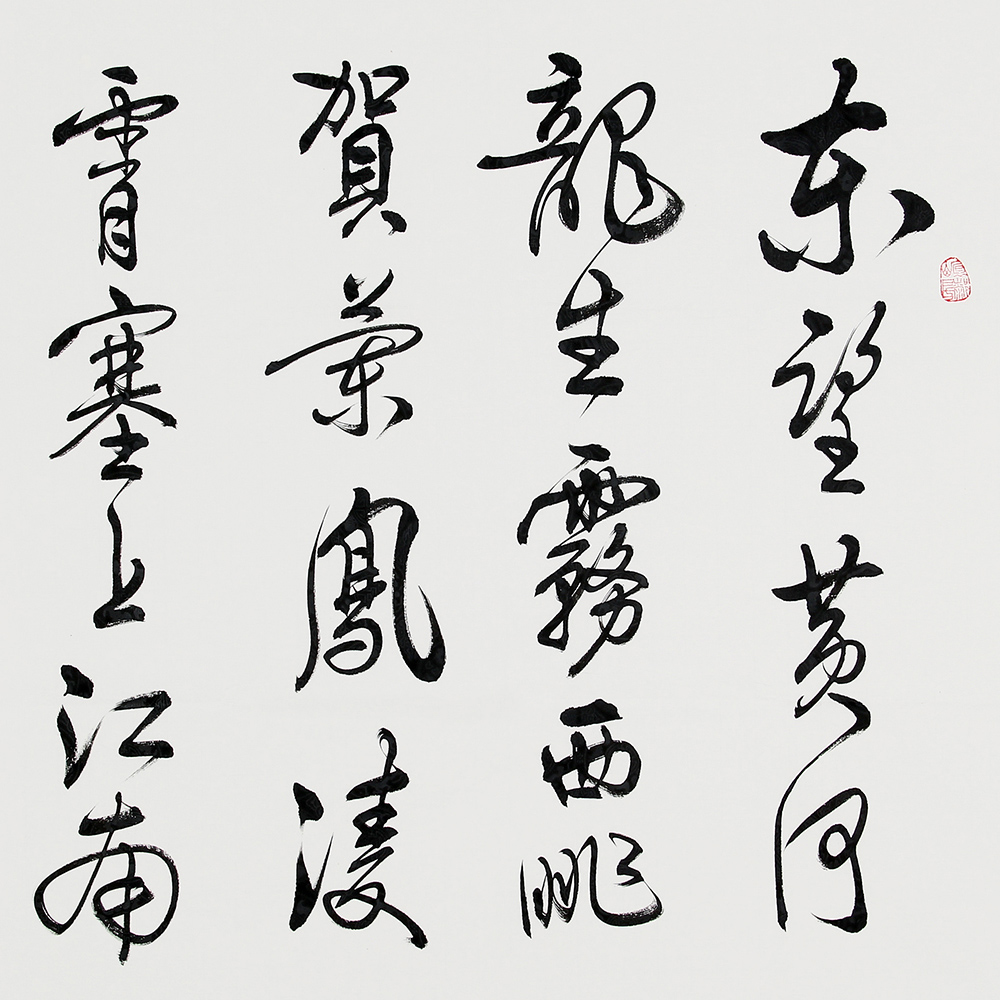 东望黄河
龍生霧西眺
賀蘭鳳凌
霄塞上江南